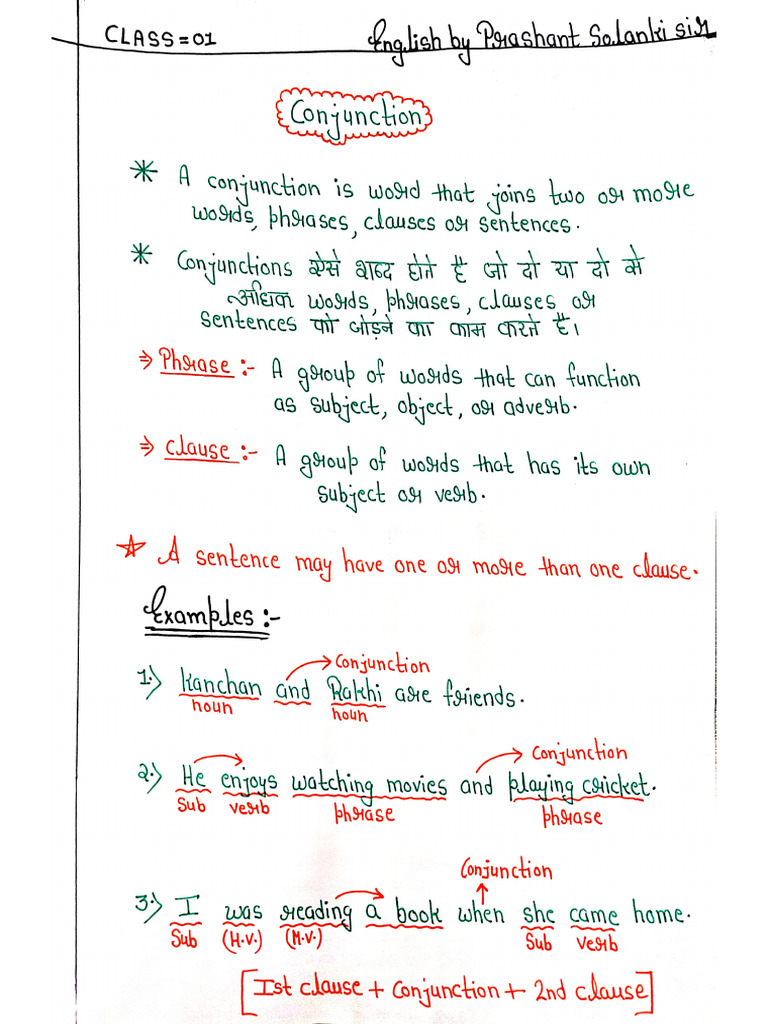 CLASS=01 English by Prashant Solanki sir
Conjunction
* A conjunction is word that joins two or more
words, phrases, clauses or sentences.
* Conjunctions ऐसे शब्द होते है जो दो या दो से
अधिक words, phrases, clauses or
sentences को जोड़ने का काम करते है।
⇒ Phrase :- A group of words that can function
as subject, object, or adverb.
⇒ Clause :- A group of words that has its own
subject or verb.
☆ A sentence may have one or more than one clause.
Examples :-
Conjunction
1.) Kanchan and Rakhi are friends.
noun noun
Conjunction
2.) He enjoys watching movies and playing cricket.
Sub verb phrase phrase
Conjunction
3.) I was reading a book when she came home.
Sub (H.V.) (M.V.) Sub verb
[Ist clause + Conjunction + 2nd clause]